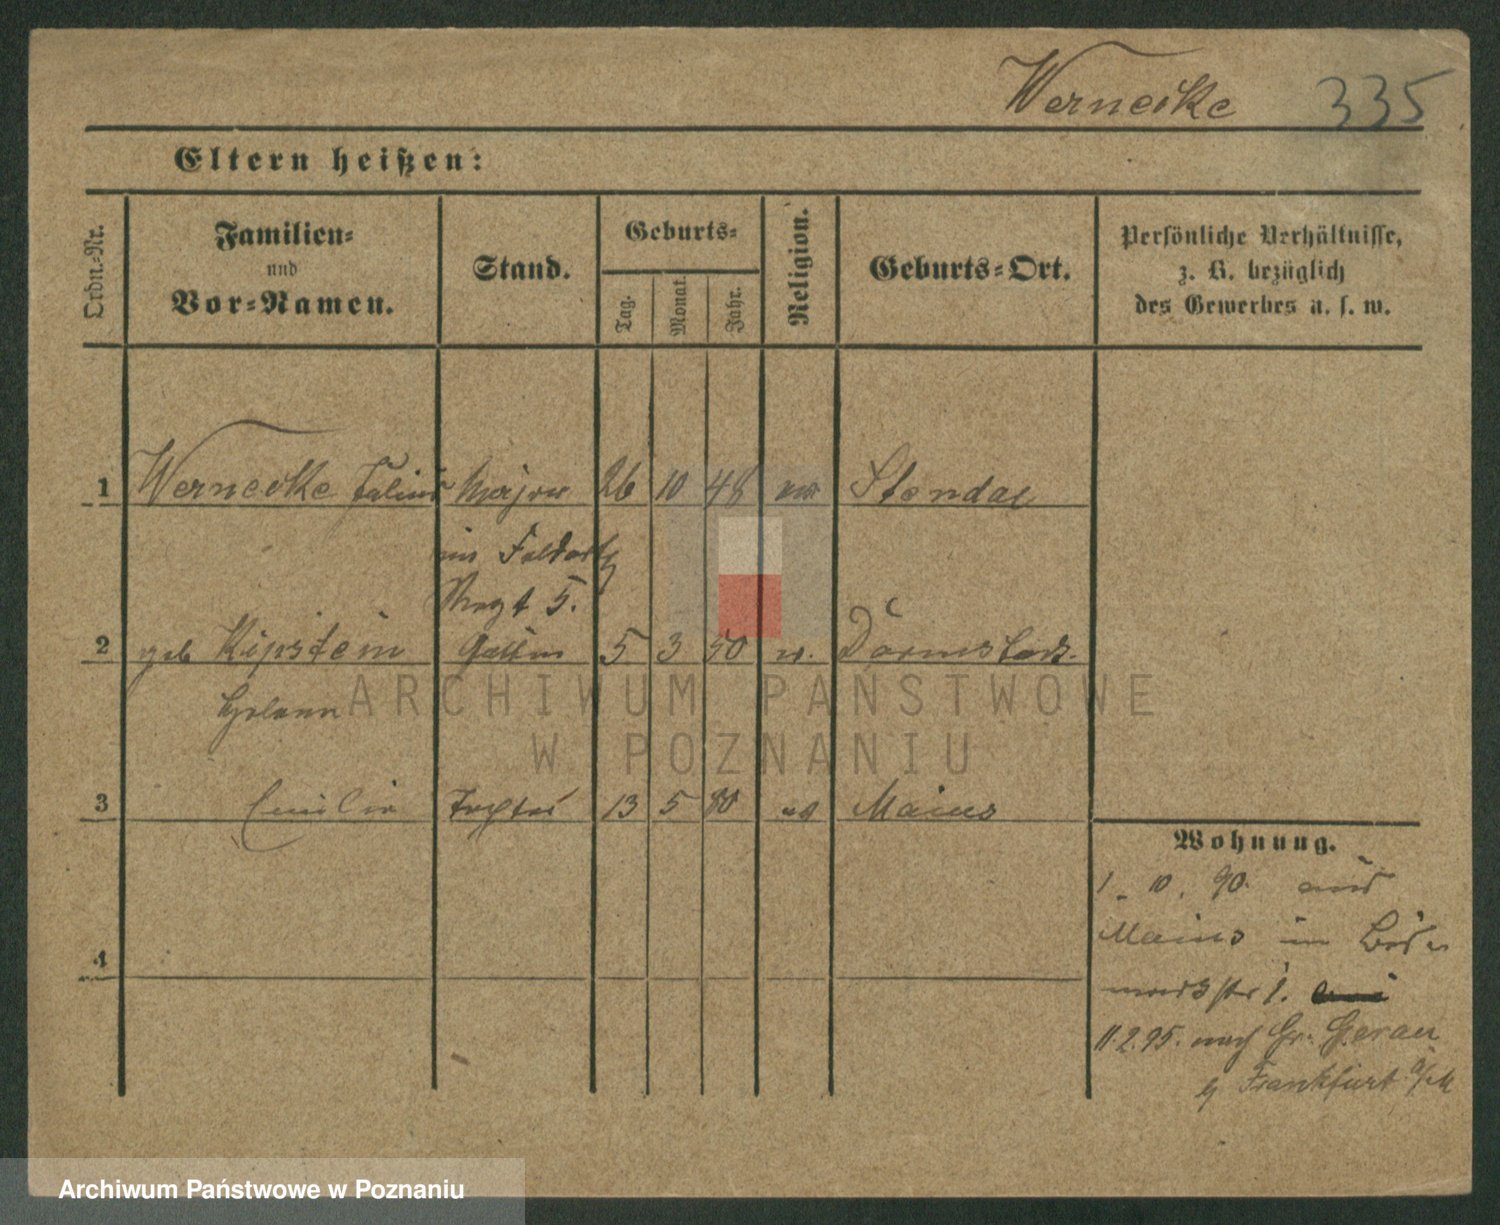 Wernecke 335
Eltern heißen:
Ordn.-Nr.
Familien-
und
Vor-Namen.
Stand.
Geburts-
Tag.
Monat.
Jahr.
Religion.
Geburts-Ort.
Persönliche Verhältnisse,
z. B. bezüglich
des Gewerbes u. s. w.
1 Wernecke Julius Major 26 10 48 ev Stendal
im Feldart
Regt 5.
2 geb Kipstein Gattin 5 3 50 ev. Darmstadt
3 Emilie Tochter 13 5 80 ev Mainz
4
Wohnung.
1. 10. 90. aus
Mainz in
1.
11.2.95. nach Gr. Gerau
b/ Frankfurt a/M
ARCHIWUM PAŃSTWOWE
W POZNANIU
Archiwum Państwowe w Poznaniu